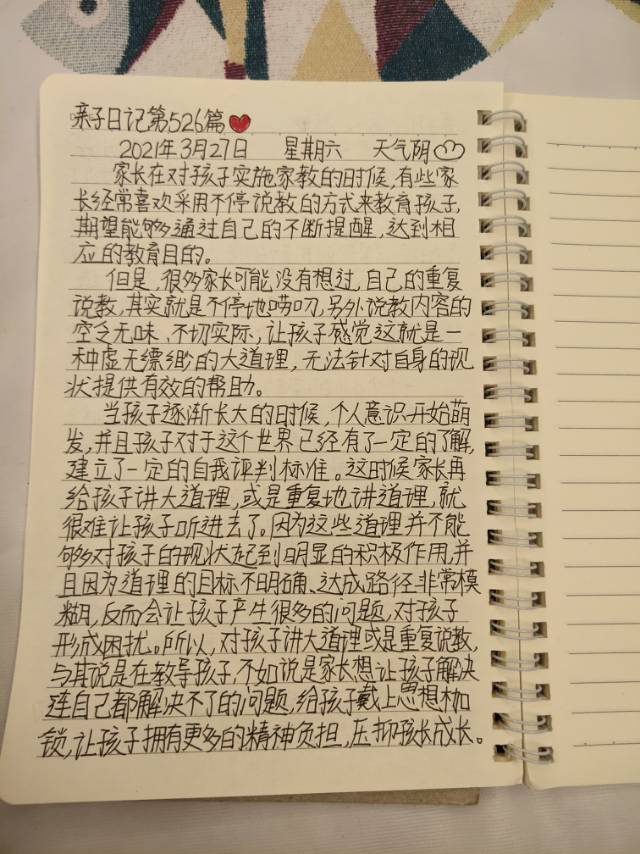 亲子日记第526篇
2021年3月27日 星期六 天气阴
家长在对孩子实施家教的时候,有些家
长经常喜欢采用不停说教的方式来教育孩子,
期望能够通过自己的不断提醒,达到相
应的教育目的。
但是,很多家长可能没有想过,自己的重复
说教,其实就是不停地唠叨,另外说教内容的
空乏无味、不切实际,让孩子感觉这就是一
种虚无缥缈的大道理,无法针对自身的现
状提供有效的帮助。
当孩子逐渐长大的时候,个人意识开始萌
发,并且孩子对于这个世界已经有了一定的了解,
建立了一定的自我评判标准。这时候家长再
给孩子讲大道理,或是重复地讲道理,就
很难让孩子听进去了。因为这些道理并不能
够对孩子的现状起到明显的积极作用,并
且因为道理的目标不明确、达成路径非常模
糊,反而会让孩子产生很多的问题,对孩子
形成困扰。所以,对孩子讲大道理或是重复说教,
与其说是在教导孩子,不如说是家长想让孩子解决
连自己都解决不了的问题,给孩子戴上思想枷
锁,让孩子拥有更多的精神负担,压抑孩长成长。